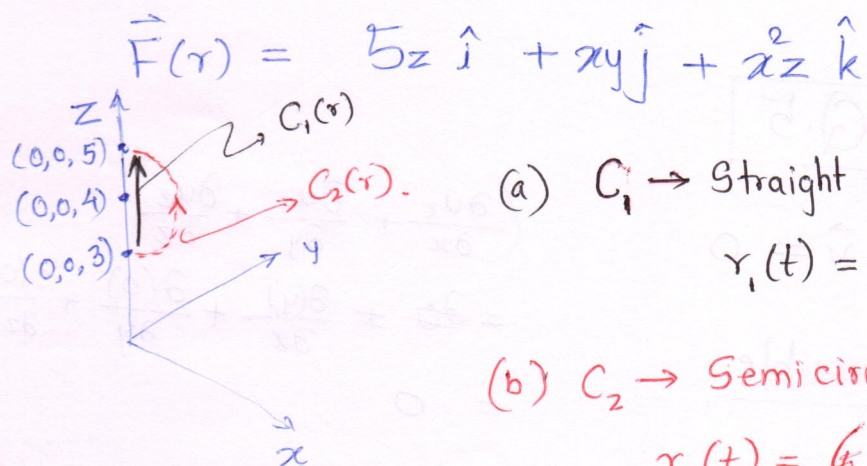 F⃗(r) = 5z î + xy ĵ + x²z k̂
z
C₁(r)
(0,0,5)
C₂(r).
(0,0,4)
(0,0,3)
y
x
(a) C₁ → Straight
r₁(t) =
(b) C₂ → Semicir
(t) = (